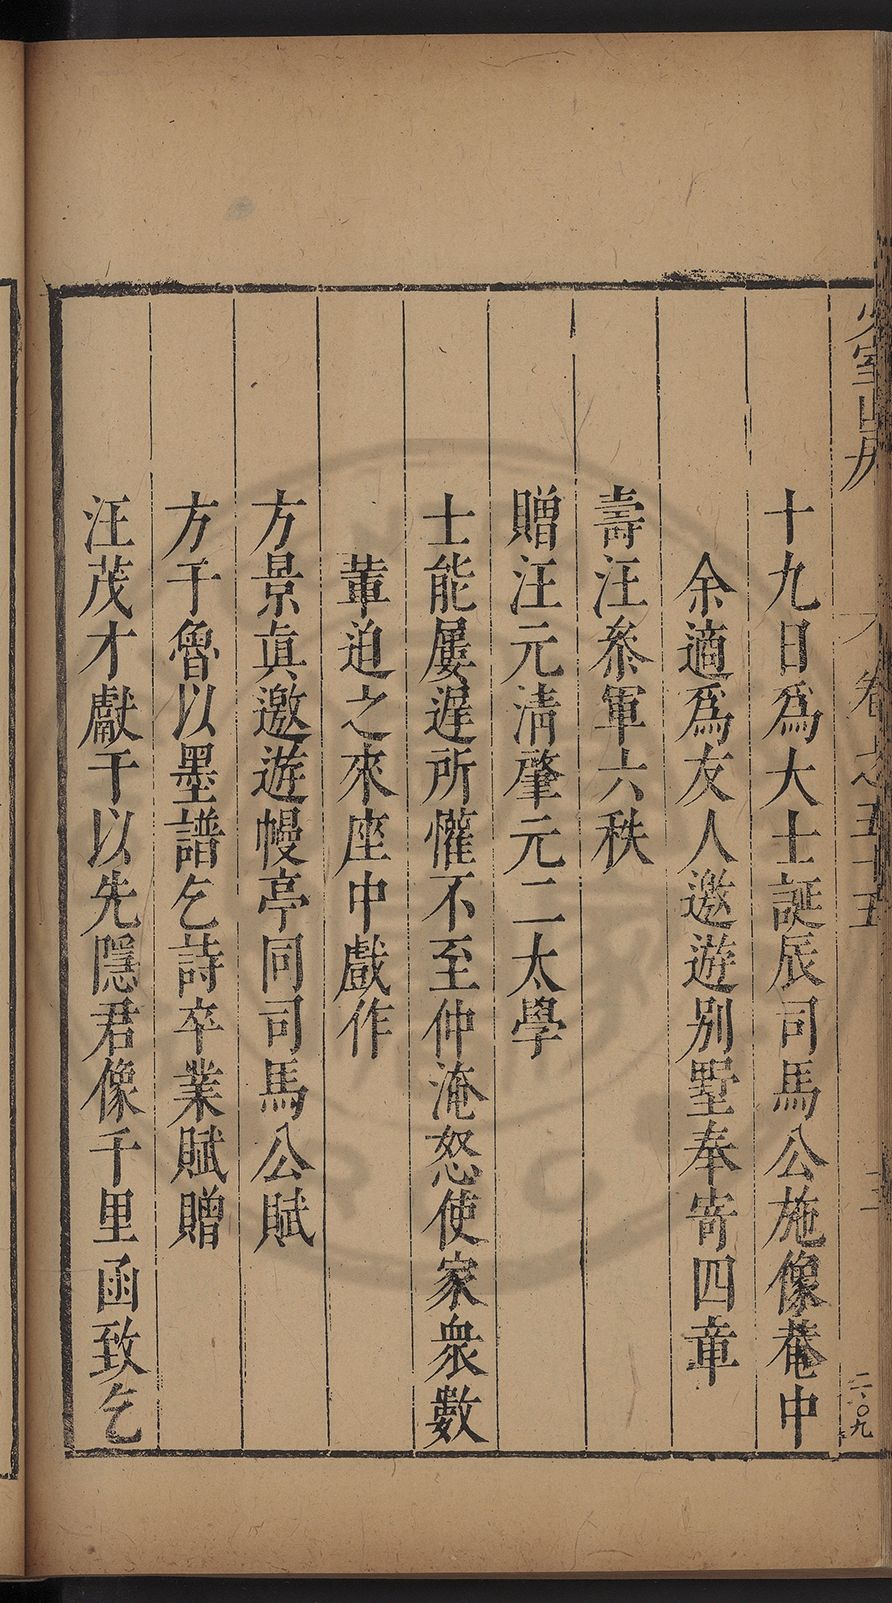 少室山房
卷之五十五
二
二〇九
十九日爲大士誕辰司馬公施像菴中
余適爲友人邀遊别墅奉寄四章
壽汪叅軍六秩
贈汪元淸肇元二太學
士能屢遲所懽不至仲淹怒使家衆數
軰迫之來座中戲作
方景眞邀遊幔亭同司馬公賦
方于魯以墨譜乞詩卒業賦贈
汪茂才獻于以先隱君像千里函致乞